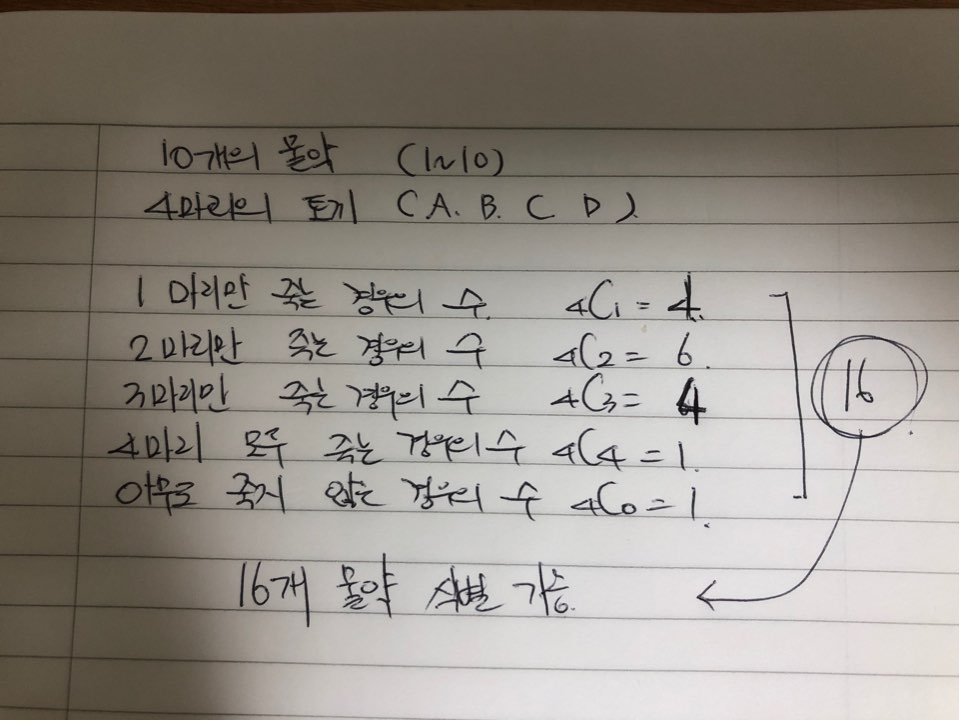 10개의 물약 (1~10)
4마리의 토끼 (A. B. C D).
1 마리만 죽는 경우의 수. 4C1 = 4.
2마리만 죽는 경우의 수 4C2 = 6.
3마리만 죽는 경우의 수 4C3 = 4
4마리 모두 죽는 경우의 수 4C4 = 1.
아무도 죽지 않는 경우의 수 4C0 = 1.
16
16개 물약 식별 가능.